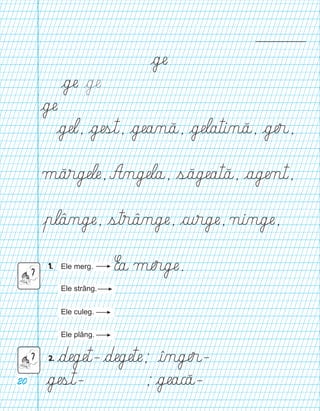 ge
ge ge
ge
gel, gest, geană, gelatină, ger,
mărgele, Angela, săgeată, agent,
plânge, strânge, curge, ninge,
1. Ele merg. → Ea merge.
Ele strâng. →
Ele culeg. →
Ele plâng. →
2. deget - degete; înger -
20 gest - ; geacă -